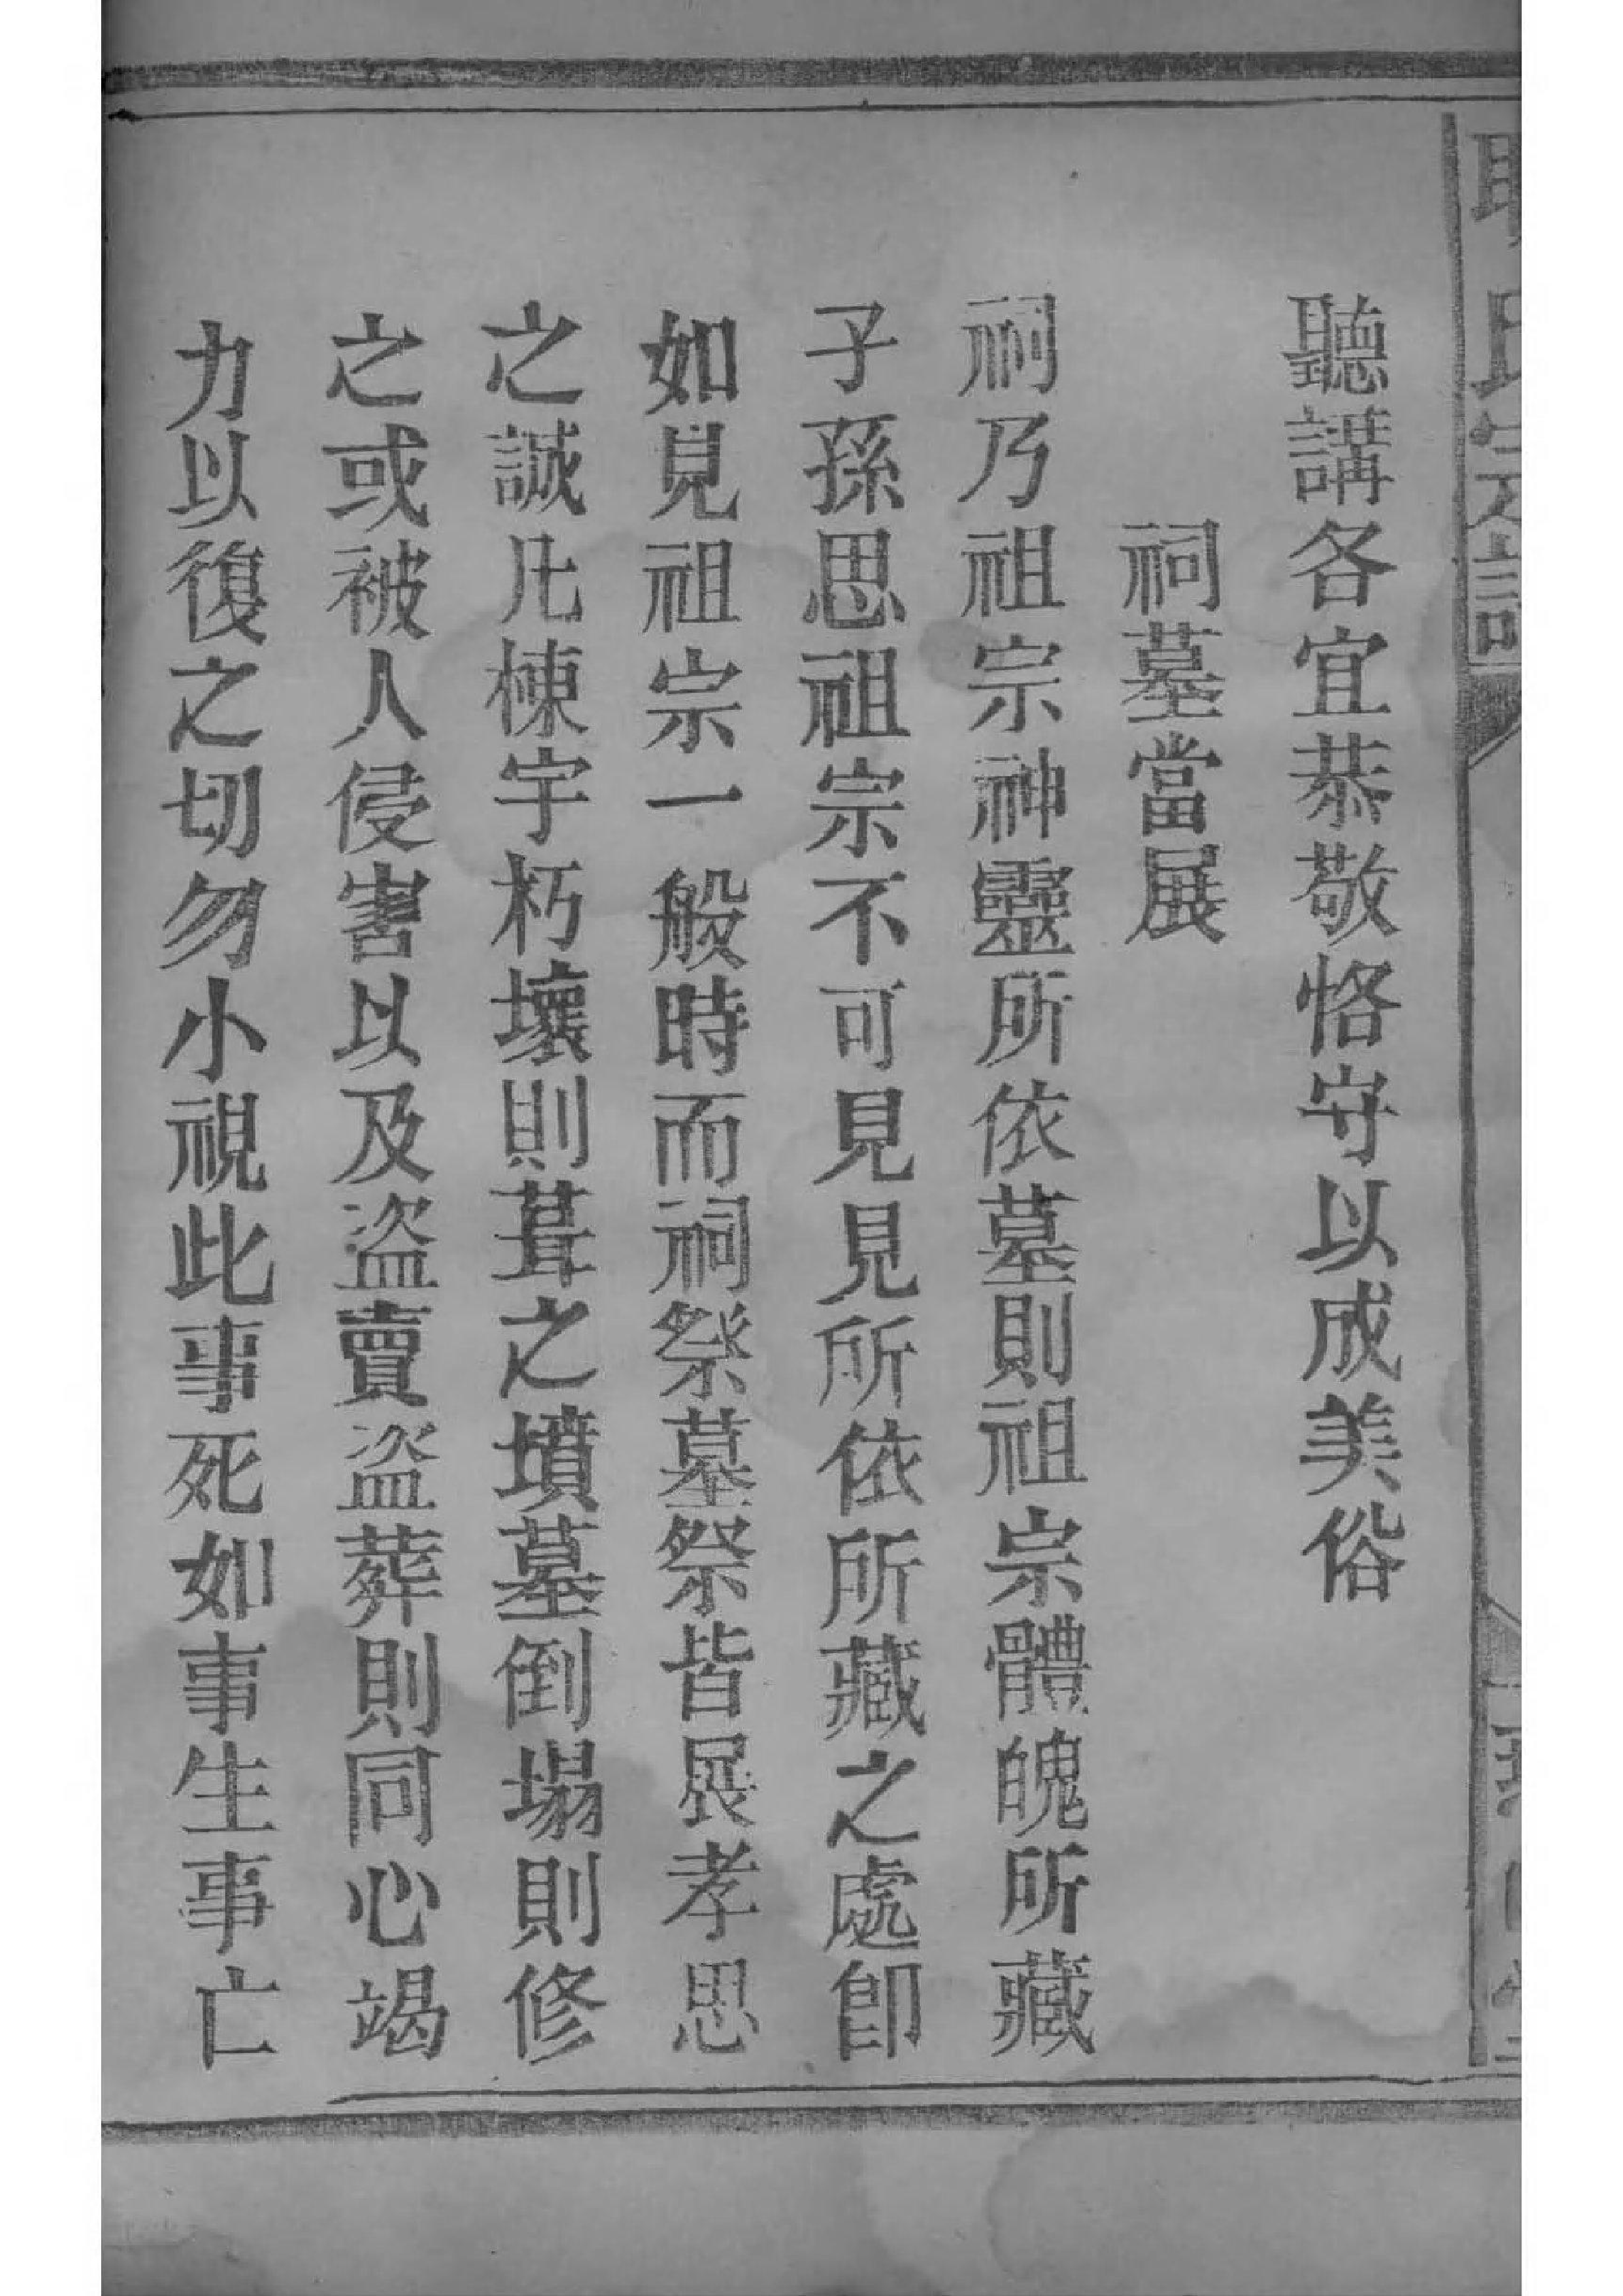 氏宗譜
聽講各宜恭敬恪守以成美俗
祠墓當展
祠乃祖宗神靈所依墓則祖宗體魄所藏
子孫思祖宗不可見見所依所藏之處卽
如見祖宗一般時而祠祭墓祭皆展孝思
之誠凡棟宇朽壞則葺之墳墓倒塌則修
之或被人侵害以及盜賣盜葬則同心竭
力以復之切勿小視此事死如事生事亡